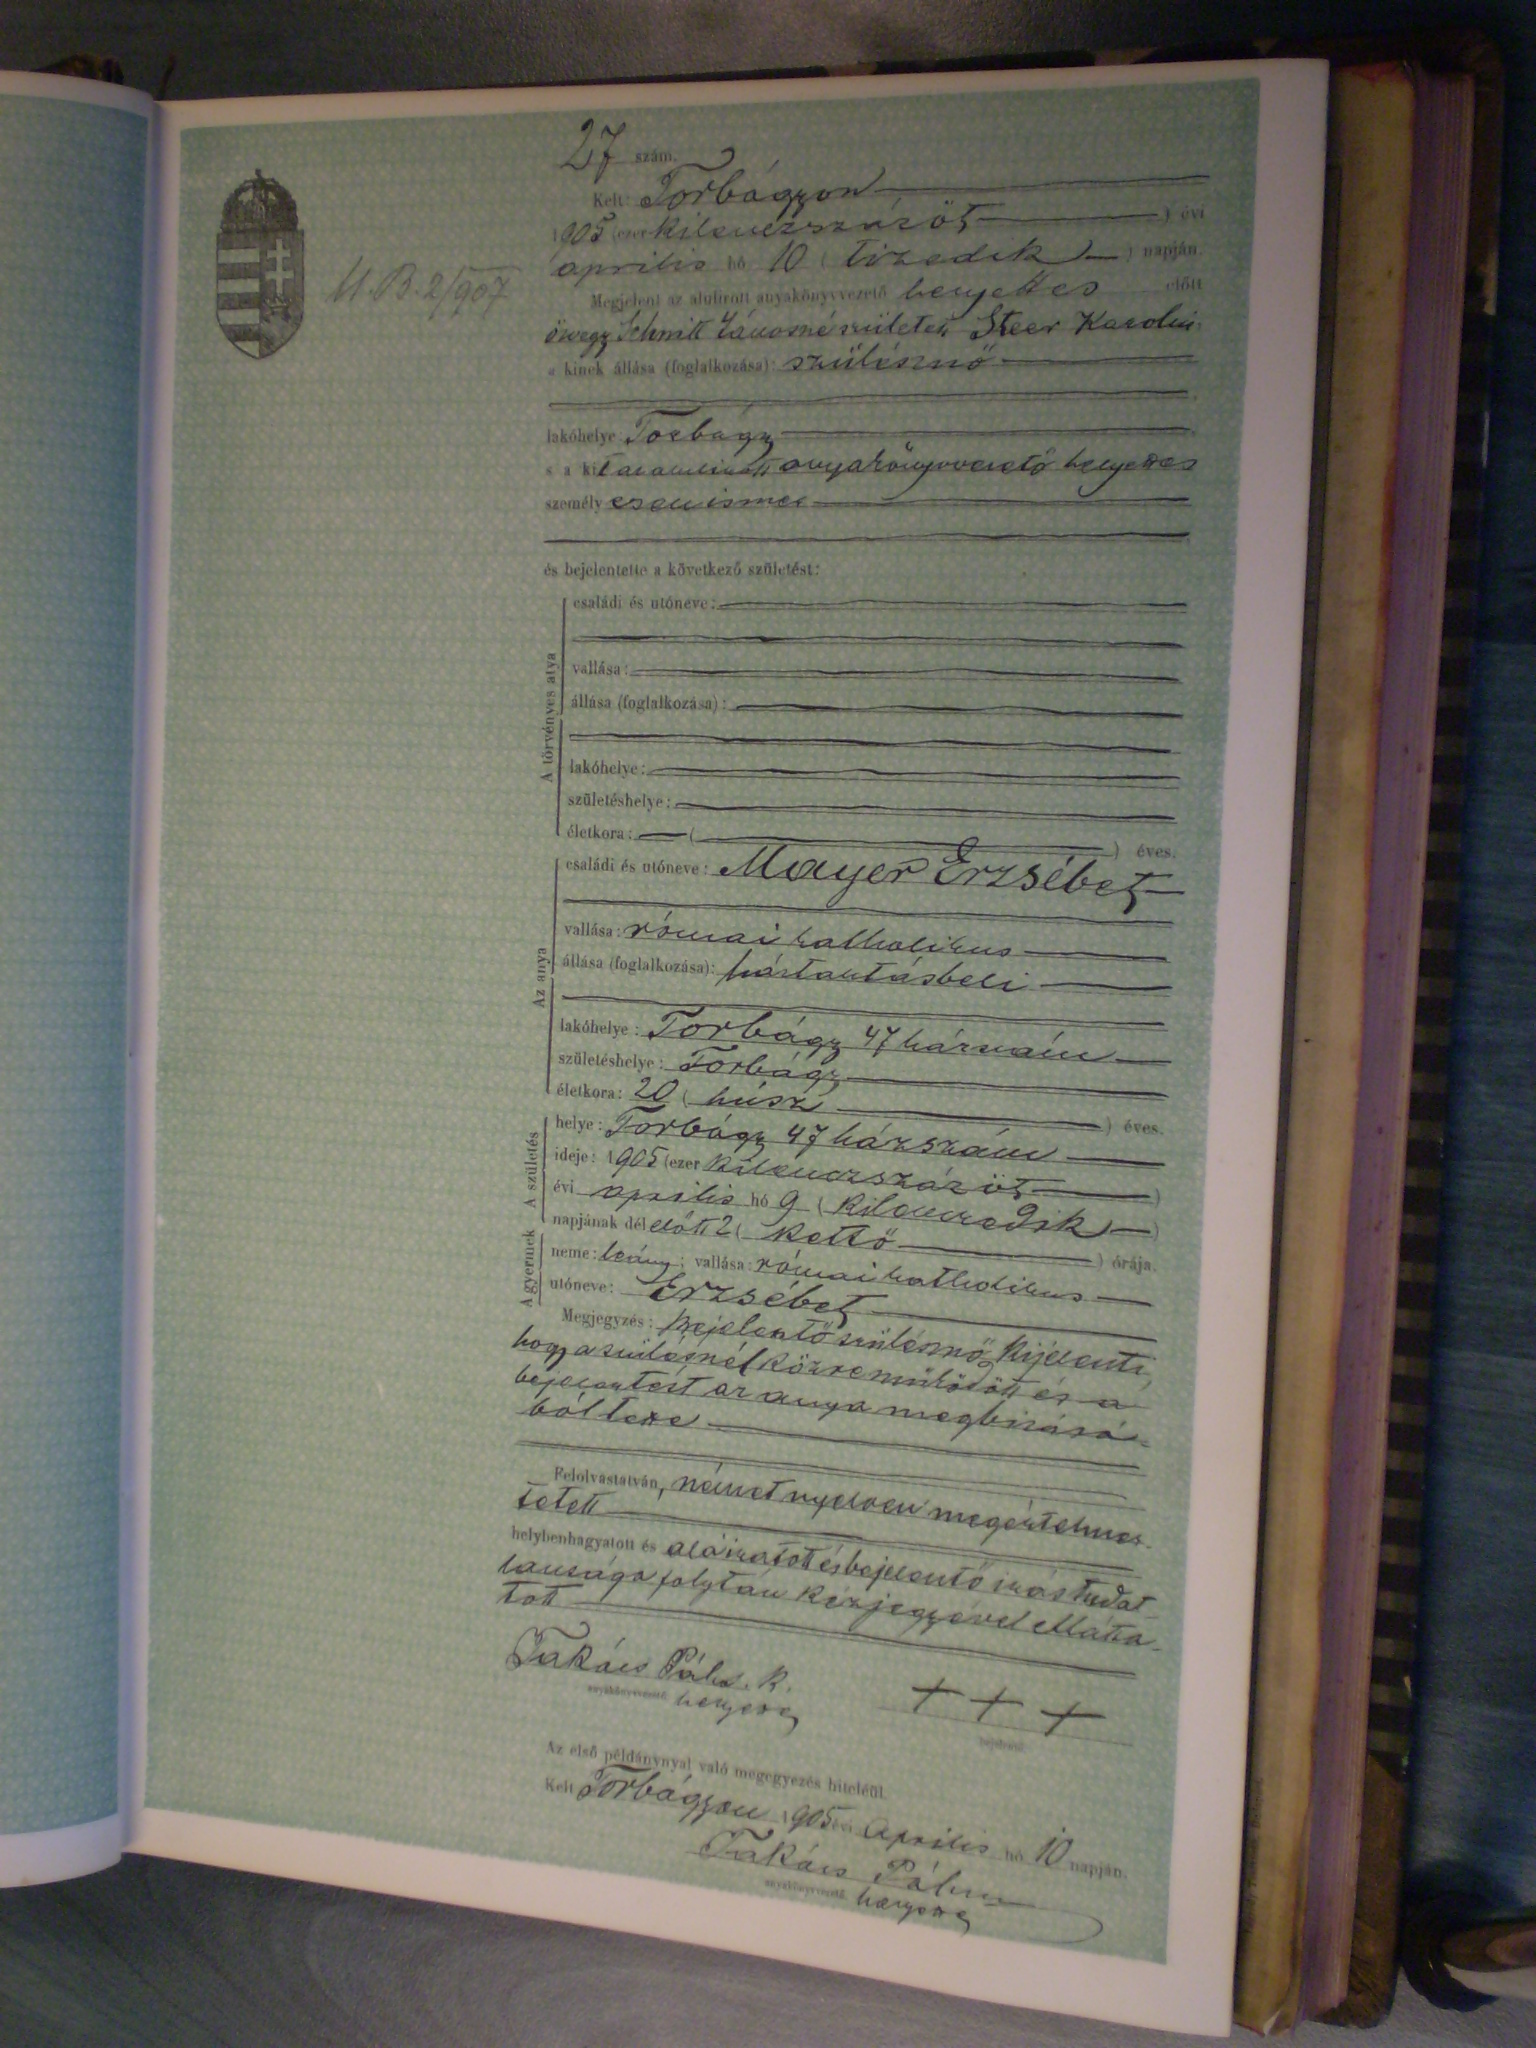 27 szám.
Kelt: Torbágyon
1905 (ezer kilenczszázöt) évi
április hó 10 (tizedik) napján.
Megjelent az alulirott anyakönyvvezető helyettes előtt
özvegy Schmitt Jánosné született Steer Karolin,
a kinek állása (foglalkozása): szülésznő
U. B. 2/907
lakóhelye Torbágy
s a kit anyakönyvvezető helyettes
személyesen ismer
és bejelentette a következő születést:
A törvényes atya
családi és utóneve:
vallása:
állása (foglalkozása):
lakóhelye:
születéshelye:
életkora: ( ) éves.
Az anya
családi és utóneve: Mayer Erzsébet
vallása: római katholikus
állása (foglalkozása): háztartásbeli
lakóhelye: Torbágy 47 házszám
születéshelye: Torbágy
életkora: 20 (húsz) éves.
A születés
helye: Torbágy 47 házszám
ideje: 1905 (ezer kilenczszázöt)
évi április hó 9 (kilenczedik)
napjának délelőtt 2 (kettő) órája.
A gyermek
neme: leány; vallása: római katholikus
utóneve: Erzsébet
Megjegyzés: Bejelentő szülésznő kijelenti,
hogy a szülésnél közreműködött és a
bejelentést az anya megbizásá-
ból tette
Felolvastatván, német nyelven megértelmez-
tetett
helybenhagyatott és aláiratott és bejelentő irástudat-
lansága folytán kézjegyével ellátta-
tott
Takács Pál s. k.
anyakönyvvezető helyettes
+ + +
bejelentő
Az első példánynyal való megegyezés hiteléül.
Kelt Torbágyon 1905 évi április hó 10 napján.
Takács Pál
anyakönyvvezető helyettes